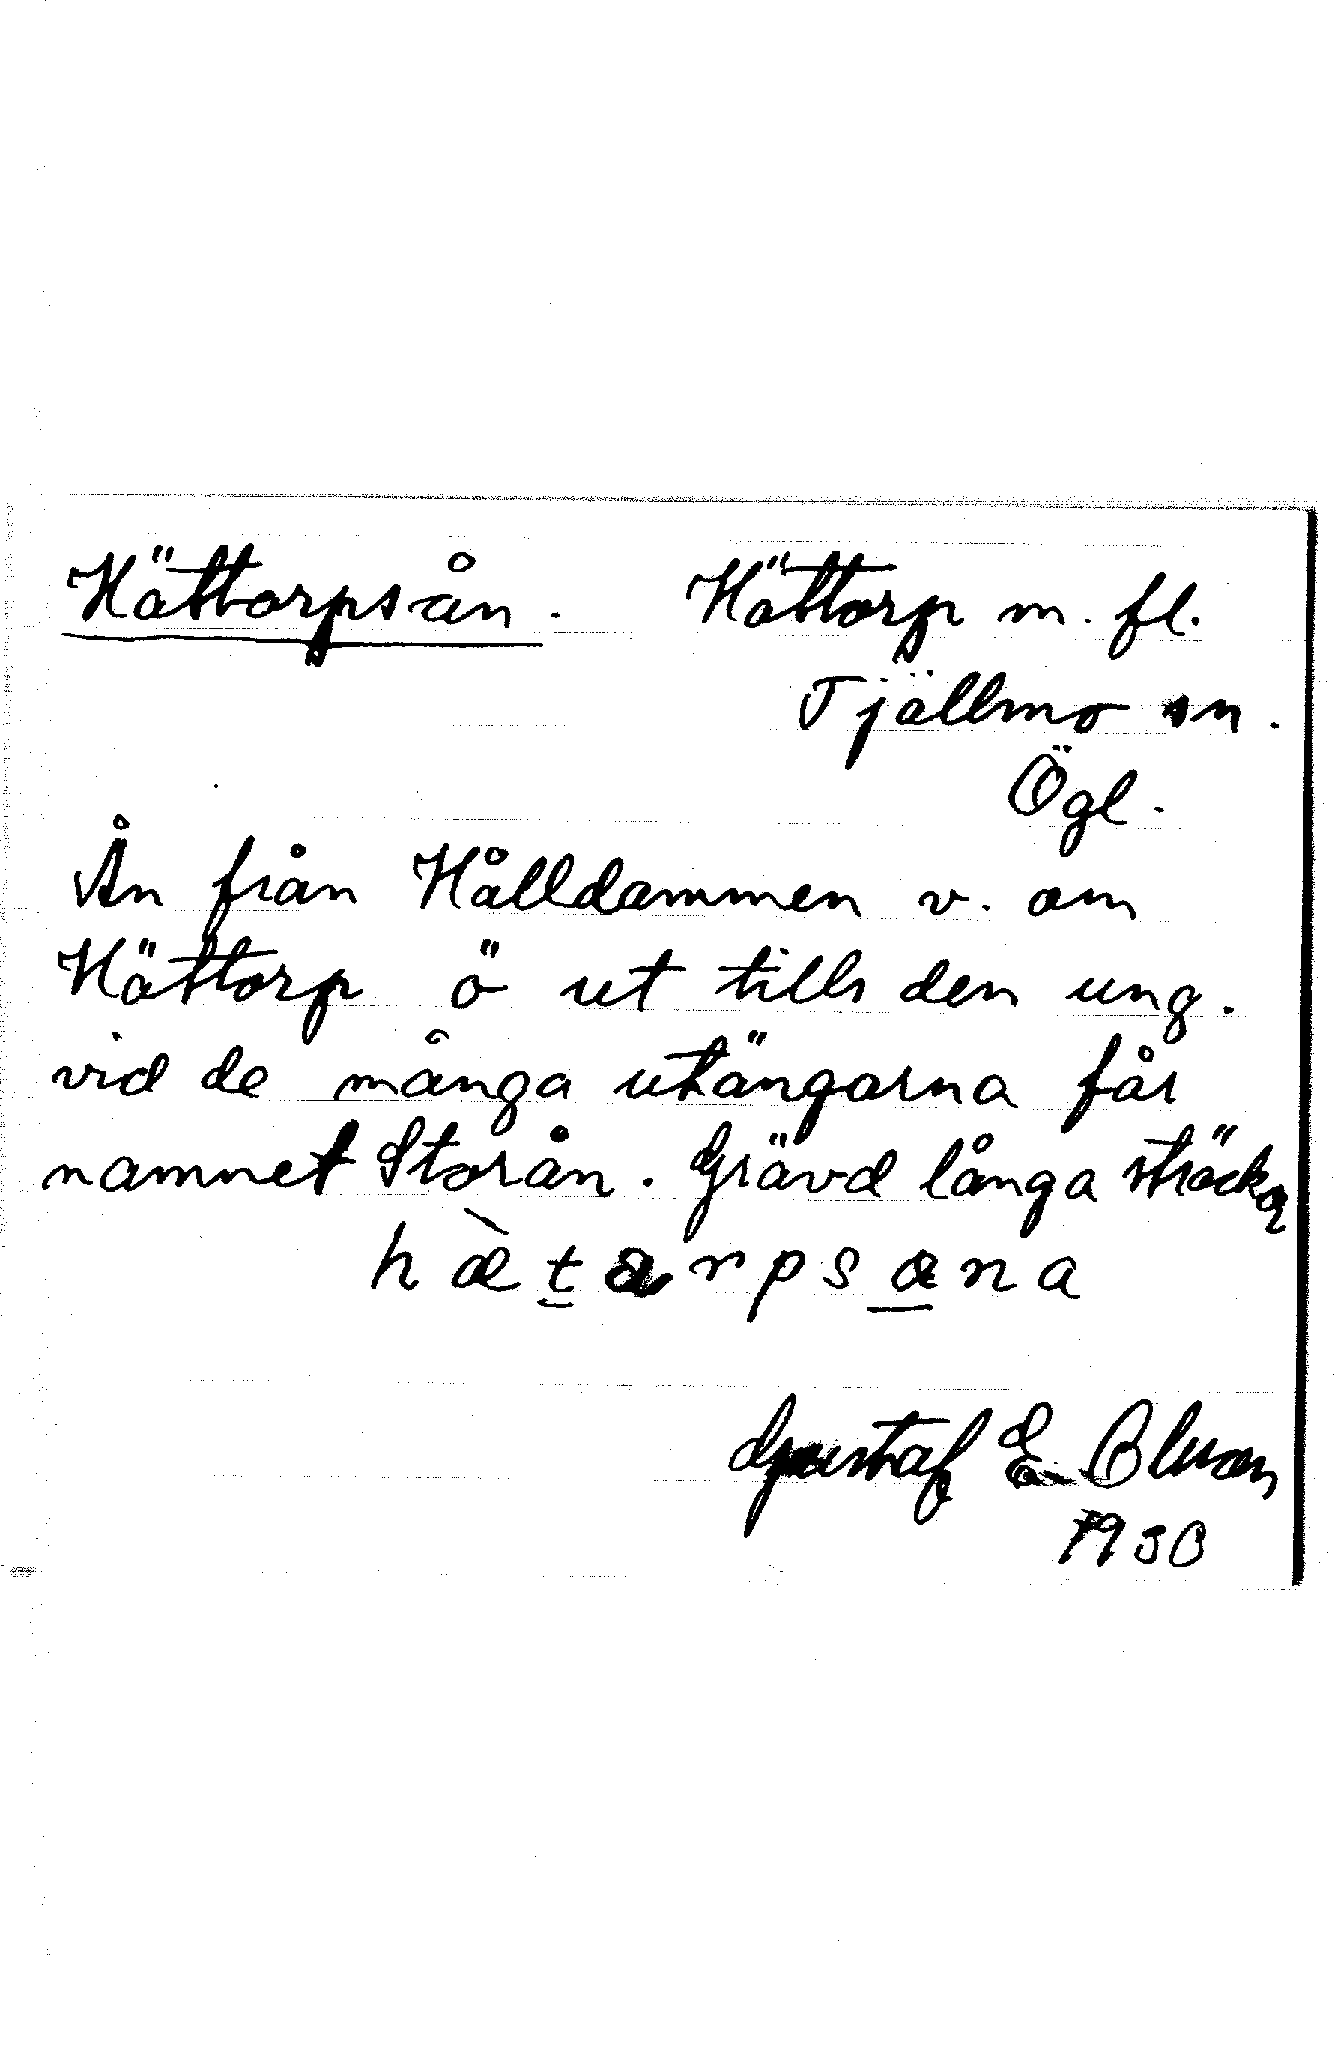 Hättorpsån. Hättorp m. fl.
Tjällmo sn.
Ögl.
Ån från Hålldammen v. om
Hättorp ö ut tills den ung.
vid de många utängarna får
namnet Storån. Grävd långa sträckor
hæ̀tarpsana
Gustaf E. Olson
1930